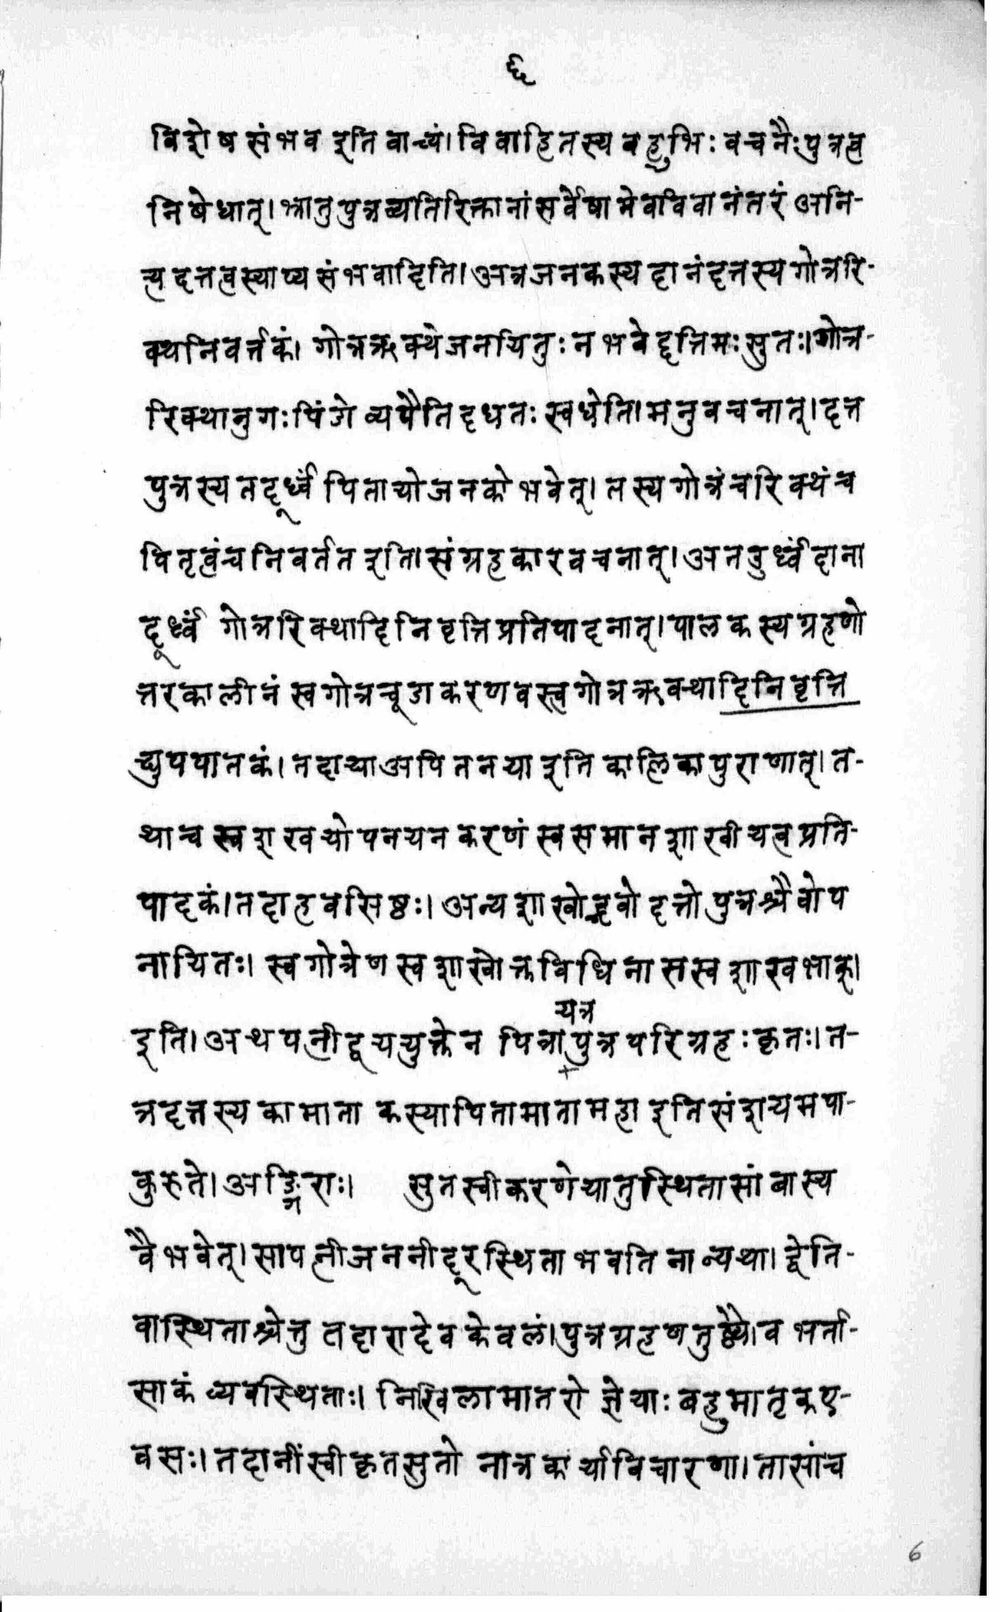 ६
विशेष संभव इति वाच्यं। विवाहितस्य बहुभिः वचनैः पुत्रत्व
निषेधात्। भ्रातृपुत्रव्यतिरिक्तानां सर्वेषामेवविवानंतरं अनि-
त्यदत्तत्वस्याप्यसंभवादिति। अत्रजनकस्य दानंदत्तस्य गोत्ररि-
क्थनिवर्त्तकं। गोत्रऋक्थेजनयितुः न भवेद्दत्रिमः सुतः। गोत्र-
रिक्थानुगः पिंडो व्यपैति ददतः स्वधेति। मनुवचनात्। दत्त
पुत्रस्य तदूर्ध्वं पितायोजनको भवेत्। तस्य गोत्रंचरिक्थंच
पितृत्वंचनिवर्तत इति। संग्रहकारवचनात्। अनदुर्ध्वंदाना
दूर्ध्वं गोत्ररिक्थादिनिवृत्तिप्रतिपादनात्। पालकस्यग्रहणो
त्तरकालीनं स्वगोत्रचूडाकरणवस्त्वगोत्रऋक्थादिनिवृत्ति
द्युपपातकं। तदाद्याअपि तनया इति कालिकापुराणात्। त-
थाच स्वशाखयोपनयनकरणं स्वसमानशाखीयत्वप्रति-
पादकं। तदाहवसिष्ठः। अन्यशाखोद्भवो दत्तो पुत्रश्चैवोप
नायितः। स्वगोत्रेण स्वशाखोक्तविधिना सस्वशाखभाक्।
इति। अथपत्नीद्वययुक्तेन पित्रा पुत्रपरिग्रहः कृतः। त-
यत्र
त्रदत्तस्य कामाता कस्यापितामातामहा इतिसंशयमपा-
कुरुते। अङ्गिराः। सुतस्वीकरणेयातुस्थितासांबास्य
वै भवेत्। सापत्नीजननीदूरस्थिता भवति नान्यथा। द्वेति-
वास्थिताश्चेत्तु तद्दारादेव केवलं। पुत्रग्रहणतुष्ट्यै।व भर्ता-
साकं व्यवस्थिताः। निखिलामातरो ज्ञेयाः बहुमातृकए-
वसः। तदानींस्वीकृतसुतो नात्रकार्याविचारणा। तासांच
6